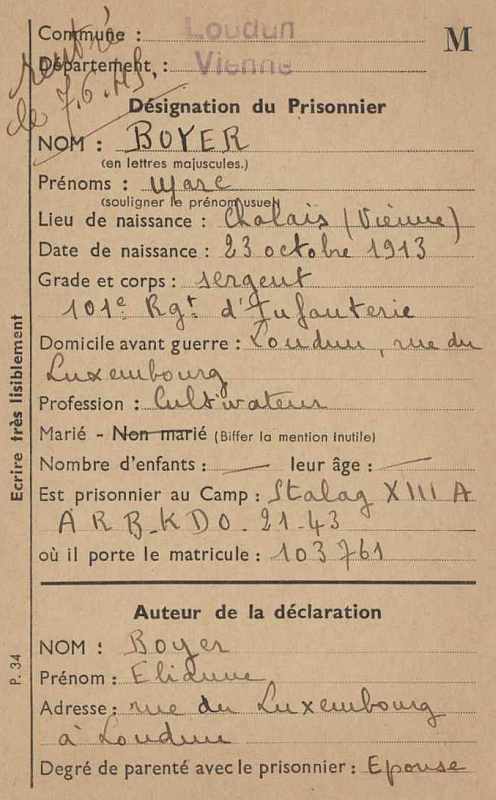 Commune : Loudun
M
Département : Vienne
rentré
le 7.6.45
Désignation du Prisonnier
NOM : BOYER
(en lettres majuscules.)
Prénoms : Marc
(souligner le prénom usuel)
Lieu de naissance : Chalais (Vienne)
Date de naissance : 23 octobre 1913
Grade et corps : sergent
101e Rgt d'Infanterie
Domicile avant guerre : Loudun, rue du
Luxembourg
Profession : Cultivateur
Marié - Non marié (Biffer la mention inutile)
Nombre d'enfants : — leur âge : —
Est prisonnier au Camp : Stalag XIII A
ARB-KDO-21-43
où il porte le matricule : 103761
Auteur de la déclaration
NOM : Boyer
Prénom : Elianne
Adresse : rue du Luxembourg
à Loudun
Degré de parenté avec le prisonnier : Epouse
Ecrire très lisiblement
P. 34